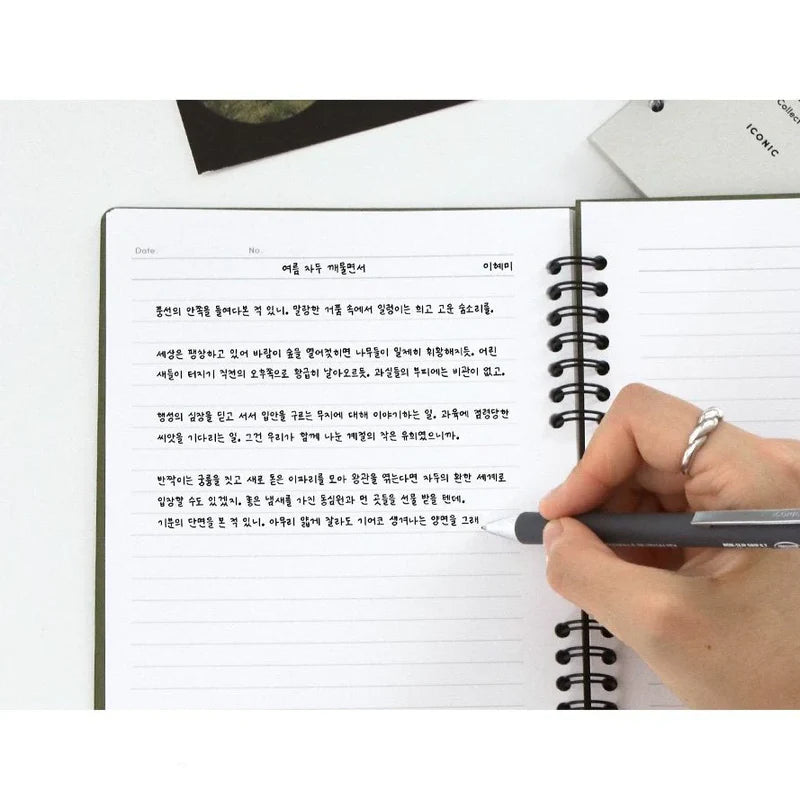 Collect
ICONIC
Date.
No.
여름 자두 깨물면서 이혜미
풍선의 안쪽을 들여다본 적 있니. 말랑한 거품 속에서 일렁이는 희고 고운 숨소리를.
세상은 팽창하고 있어 바람이 숲을 열어젖히면 나무들이 일제히 휘황해지듯. 어린
새들이 터지기 직전의 오후쪽으로 황급히 날아오르듯. 과실들의 부피에는 비관이 없고.
행성의 심장을 딛고 서서 입안을 구르는 무지에 대해 이야기하는 일. 과육에 점령당한
씨앗을 기다리는 일. 그건 우리가 함께 나눈 계절의 작은 유희였으니까.
반짝이는 궁륭을 짓고 새로 돋은 이파리를 모아 왕관을 엮는다면 자두의 환한 세계로
입장할 수도 있겠지. 좋은 냄새를 가진 동심원과 먼 곳들을 선물 받을 텐데.
기분의 단면을 본 적 있니. 아무리 얇게 잘라도 기어코 생겨나는 양면을 그래